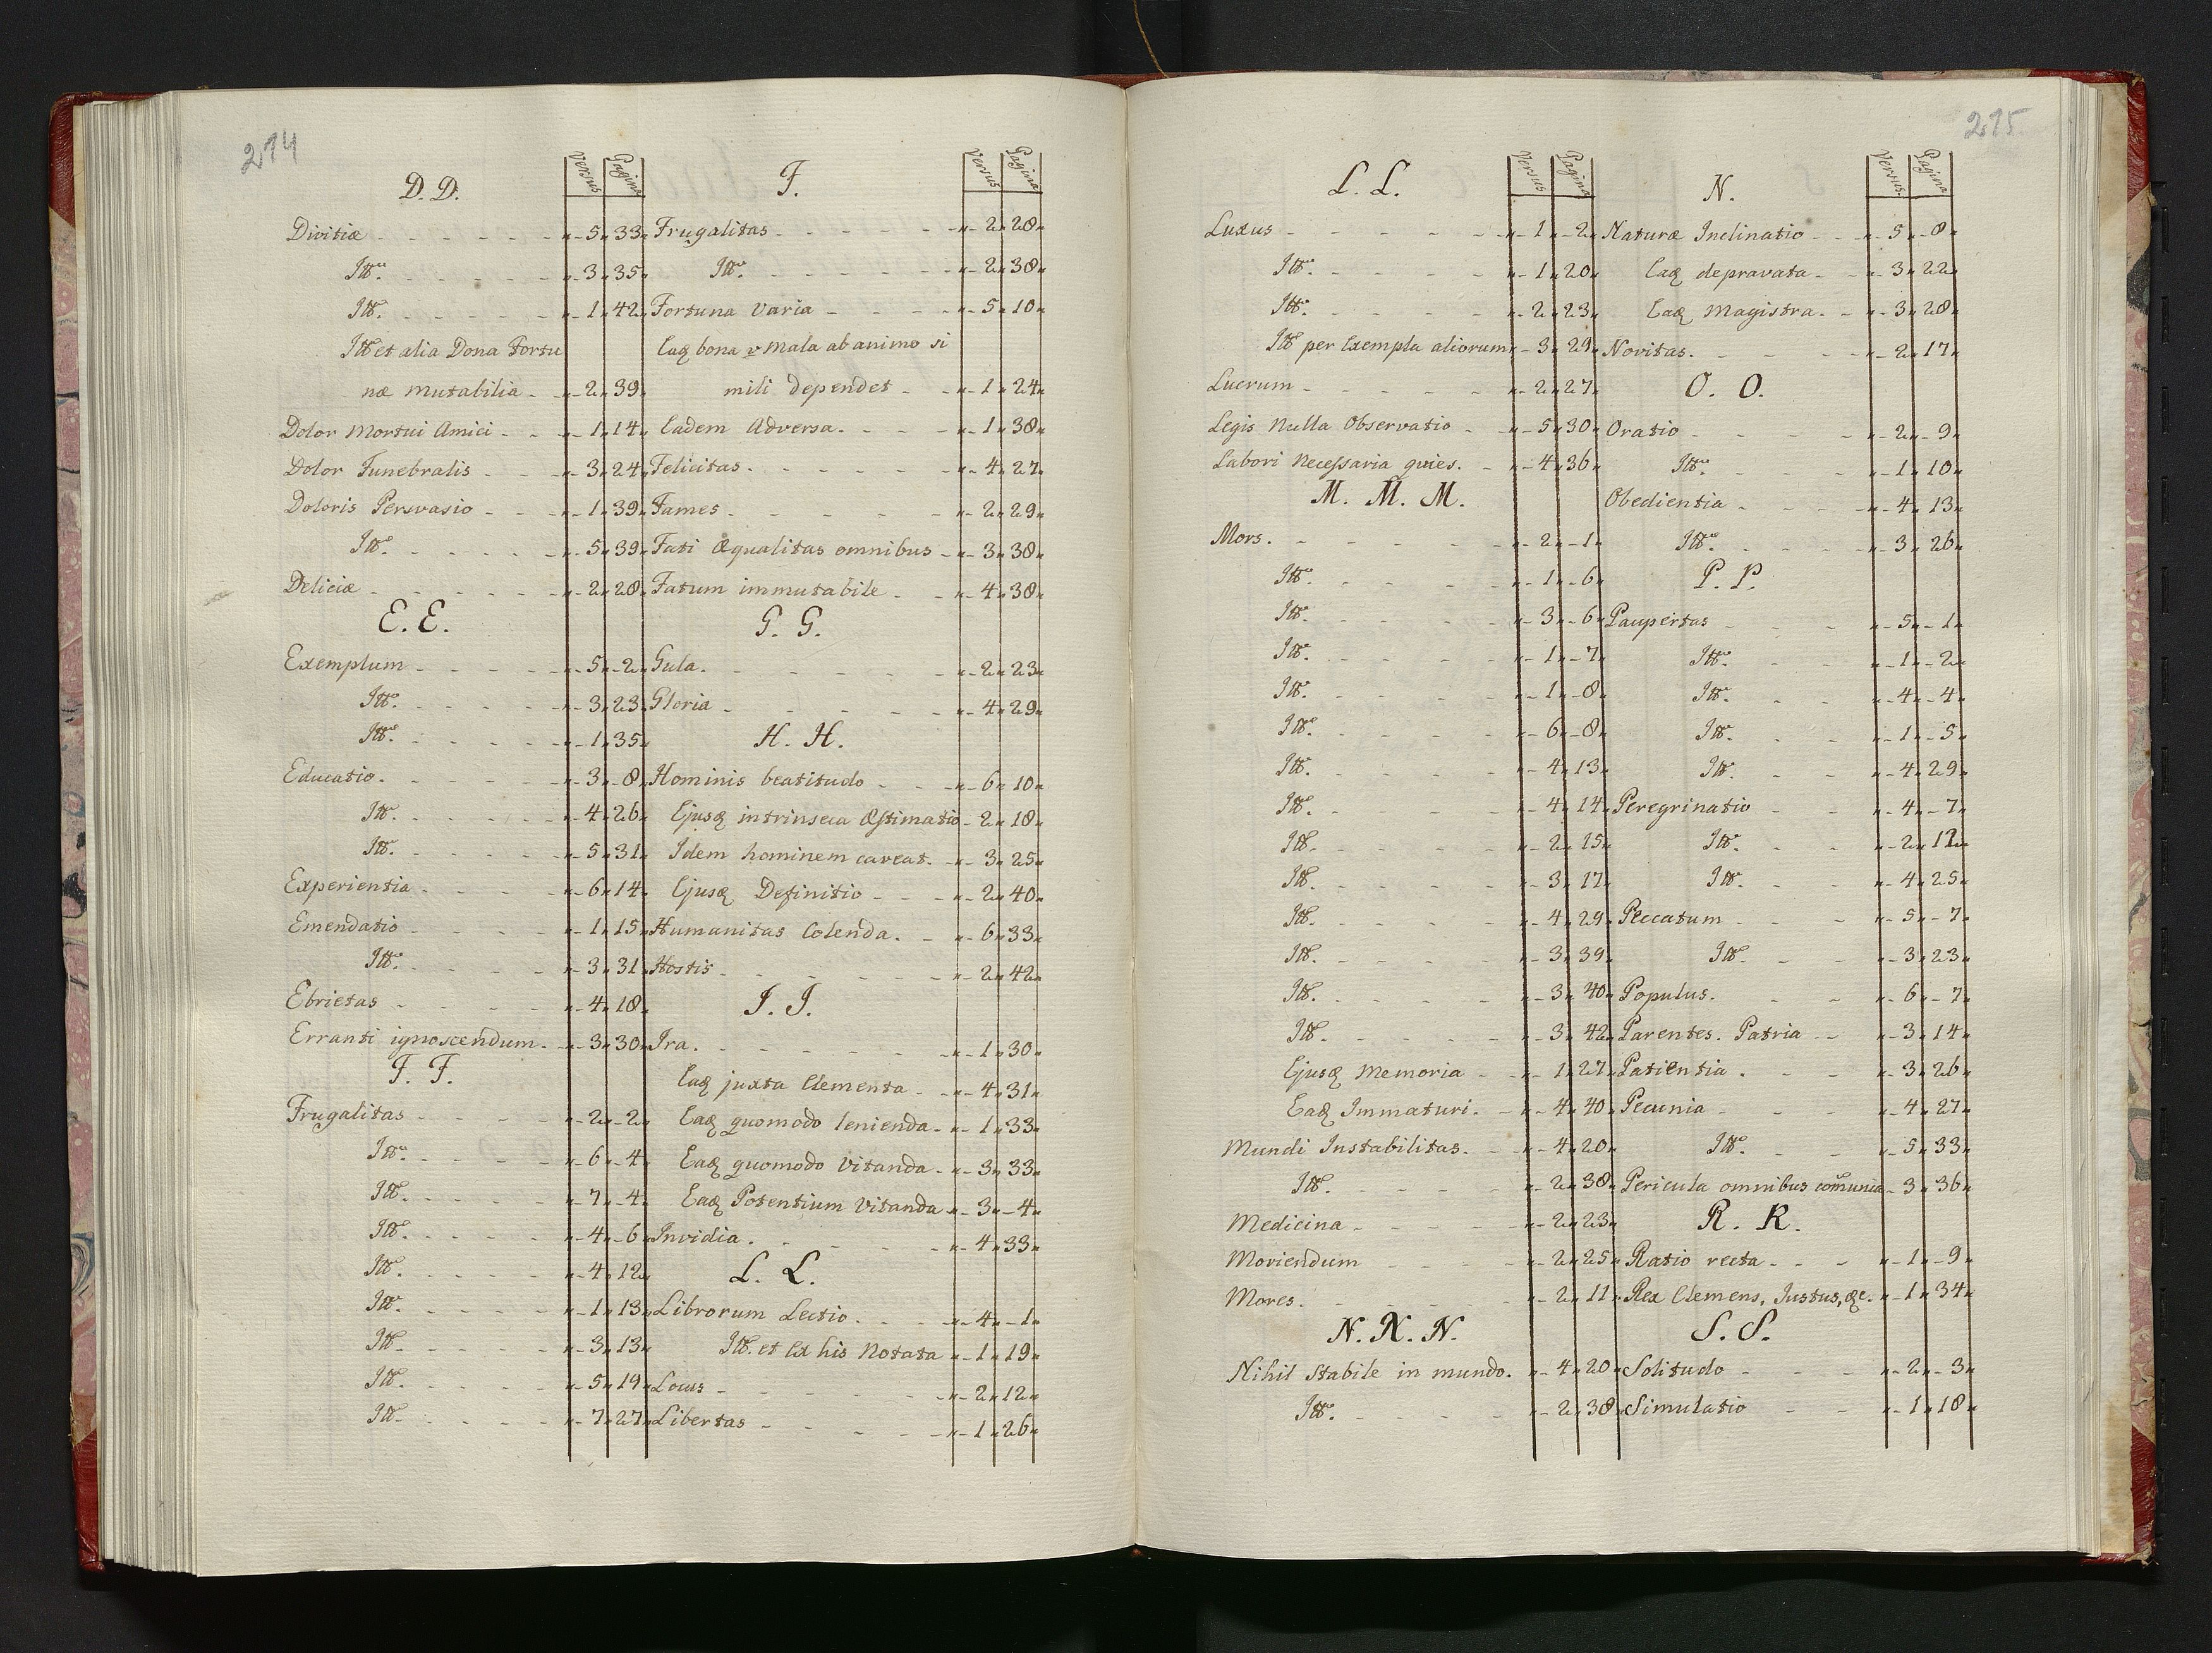 214
D. D.
Versus Pagina
Divitiæ - 5 33
Itt. - 3 35
Itt. - 1 42
Itt et alia Dona Fortu
næ mutabilia - 2 39
Dolor Mortui Amici - 1 14
Dolor Funebralis - 3 24
Doloris Persvasio - 1 39
Itt. - 5 39
Deliciæ - 2 28
E. E.
Exemplum - 5 2
Itt. - 3 23
Itt. - 1 35
Educatio. - 3 8
Itt. - 4 26
Itt. - 5 31
Experientia - 6 14
Emendatio - 1 15
Itt. - 3 31
Ebrietas - 4 18
Erranti ignoscendum. - 3 30
F. F.
Frugalitas - 2 2
Itt. - 6 4
Itt. - 7 4
Itt. - 4 6
Itt. - 4 12
Itt. - 1 13
Itt. - 3 13
Itt. - 5 19
Itt. - 7 27
F.
Versus Pagina
Frugalitas - 2 28
Itt. - 2 38
Fortuna Varia - 5 10
Eaq bona v mala ab animo si
mili dependet - 1 24
Eadem Adversa. - 1 38
Felicitas. - 4 27
Fames - 2 29
Fati æqualitas omnibus - 3 38
Fatum immutabile - 4 38
G. G.
Gula. - 2 23
Gloria - 4 29
H. H.
Hominis beatitudo - 6 10
Ejusq intrinseca Æstimatio - 2 18
Idem hominem caveat. - 3 25
Ejusq Definitio - 2 40
Humanitas Colenda. - 6 33
Hostis - 2 42
I. I.
Ira. - 1 30
Eaq juxta Elementa - 4 31
Eaq quomodo lenienda - 1 33
Eaq quomodo Vitanda - 3 33
Eaq Potentium Vitanda - 3 4
Invidia. - 4 33
L. L.
Librorum Lectio. - 4 1
Itt. et Ex his Notata - 1 19
Locus - 2 12
Libertas - 1 26
215
L. L.
Versus Pagina
Luxus - 1 2
Itt. - 1 20
Itt. - 2 23
Itt per Exempla aliorum - 3 29
Lucrum - 2 27
Legis Nulla Observatio - 5 30
Labori Necessaria quies. - 4 36
M. M. M.
Mors. - 2 1
Itt. - 1 6
Itt. - 3 6
Itt. - 1 7
Itt. - 1 8
Itt. - 6 8
Itt. - 4 13
Itt. - 4 14
Itt. - 2 15
Itt. - 3 17
Itt. - 4 29
Itt. - 3 39
Itt. - 3 40
Itt. - 3 42
Ejusq Memoria - 1 27
Eaq Immaturi. - 4 40
Mundi Instabilitas. - 4 20
Itt. - 2 38
Medicina - 2 23
Moriendum - 2 25
Mores. - 2 11
N. N. N.
Nihil Stabile in mundo. - 4 20
Itt. - 2 38
N.
Versus Pagina
Naturæ Inclinatio - 5 8
Eaq depravata - 3 22
Eaq Magistra. - 3 28
Novitas. - 2 17
O. O.
Oratio - 2 9
Itt. - 1 10
Obedientia - 4 13
Itt. - 3 26
P. P.
Paupertas - 5 1
Itt. - 1 2
Itt. - 4 4
Itt. - 1 5
Itt. - 4 29
Peregrinatio - 4 7
Itt. - 2 12
Itt. - 4 25
Peccatum - 5 7
Itt. - 3 23
Populus. - 6 7
Parentes. Patria - 3 14
Patientia. - 3 26
Pecunia - 4 27
Itt. - 5 33
Pericula omnibus comunia - 3 36
R. R.
Ratio recta. - 1 9
Rex Clemens, Justus, &c. - 1 34
S. S.
Solitudo - 2 3
Simulatio - 1 18